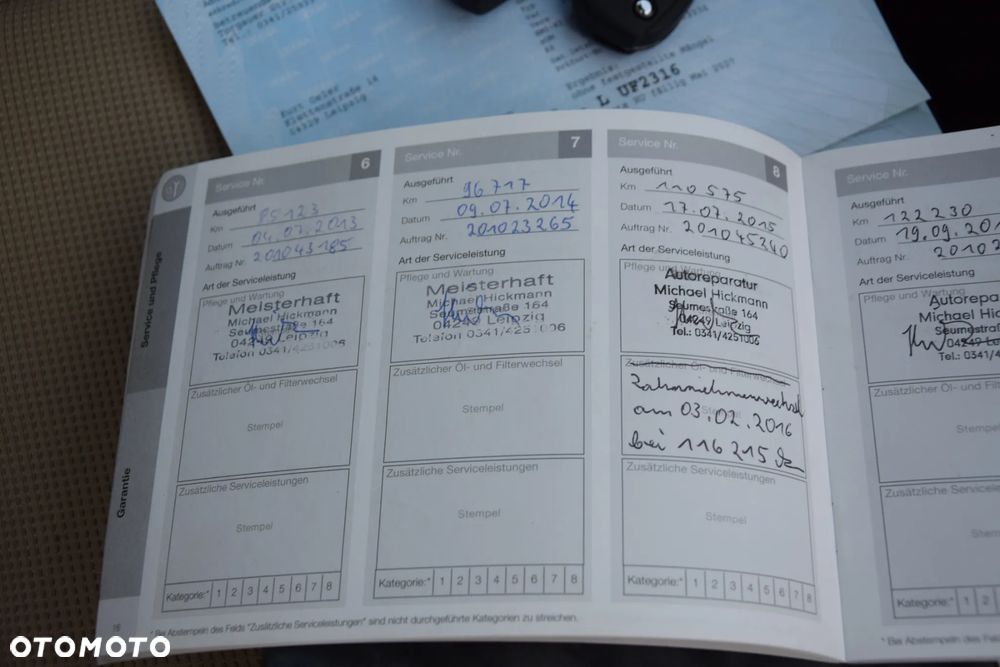 Torgauer Str.
Tel.: 0341/
Kurt Geler
Klettenstraße 14
04329 Leipzig
Ergebnis:
ohne festgestellte Mängel
L UF2316
HU fällig Mai
Service und Pflege
Garantie
16
Service Nr. 6
Ausgeführt
Km 85123
Datum 04.07.2013
Auftrag Nr. 201043185
Art der Serviceleistung
Pflege und Wartung
Meisterhaft
Michael Hickmann
Seumestraße 164
04249 Leipzig
Telefon 0341/4251006
Zusätzlicher Öl- und Filterwechsel
Stempel
Zusätzliche Serviceleistungen
Stempel
Kategorie:* 1 2 3 4 5 6 7 8
Service Nr. 7
Ausgeführt
Km 96717
Datum 09.07.2014
Auftrag Nr. 201023265
Art der Serviceleistung
Pflege und Wartung
Meisterhaft
Michael Hickmann
Seumestraße 164
04249 Leipzig
Telefon 0341/4251006
Zusätzlicher Öl- und Filterwechsel
Stempel
Zusätzliche Serviceleistungen
Stempel
Kategorie:* 1 2 3 4 5 6 7 8
Service Nr. 8
Ausgeführt
Km 110575
Datum 17.07.2015
Auftrag Nr. 201045240
Art der Serviceleistung
Pflege und Wartung
Autoreparatur
Michael Hickmann
Seumestraße 164
04249 Leipzig
Tel.: 0341/4251006
Zusätzlicher Öl- und Filterwechsel
Zahnriemenwechsel
am 03.02.2016
Stempel
bei 116215 km
Zusätzliche Serviceleistungen
Stempel
Kategorie:* 1 2 3 4 5 6 7 8
* Bei Abstempeln des Felds "Zusätzliche Serviceleistungen" sind nicht durchgeführte Kategorien zu streichen.
Service Nr.
Ausgeführt
Km 122230
Datum 19.09.201
Auftrag Nr. 20102
Art der Serviceleistung
Pflege und Wartung
Autorepa
Michael Hic
Seumestraß
04249 Le
Tel.: 0341/4
Zusätzlicher Öl- und Fi
Stemp
Zusätzliche Servicele
Stem
Kategorie:* 1 2
* Bei Abstempeln des Fel
OTOMOTO